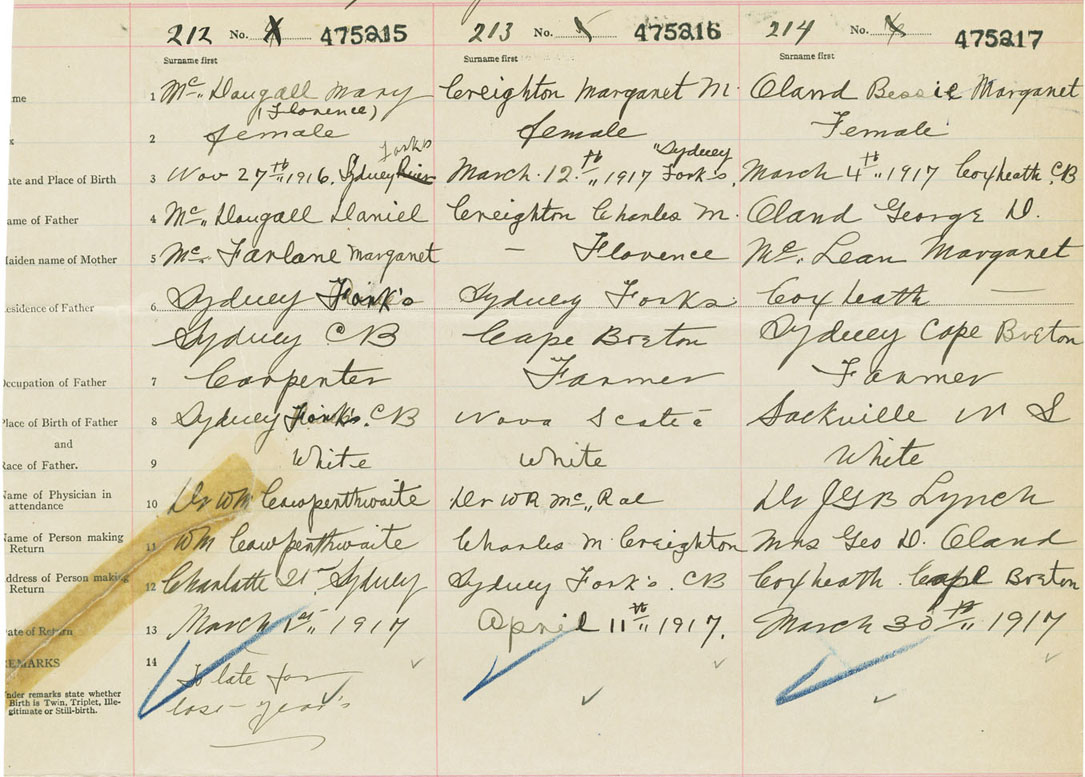 212 No. 475215 213 No. 475216 214 No. 475217
Surname first Surname first Surname first
me 1 Mc.. Dougall Mary Creighton Margaret M. Oland Bessie Margaret
(Florence)
2 female female Female
Forks "Sydney
ate and Place of Birth 3 Nov 27th,, 1916. Sydney River March. 12.th,, 1917 Fork's. March 4th,, 1917 Coxheath CB
ame of Father 4 Mc.. Dougall Daniel Creighton Charles M. Oland George D.
Maiden name of Mother 5 Mc. Farlane Margaret – Florence Mc. Lean Margaret
esidence of Father 6 Sydney Fork's Sydney Forks Coxheath —
Sydney CB Cape Breton Sydney Cape Breton
Occupation of Father 7 Carpenter Farmer Farmer
Place of Birth of Father 8 Sydney Fork's. CB Nova Scotia Sackville N S
and
Race of Father. 9 White White White
Name of Physician in
attendance 10 Dr Wm Cawpenthwaite Dr WR Mc.. Rae Dr JGB Lynch
Name of Person making
Return 11 Wm Cawpenthwaite Charles M. Creighton Mrs Geo D. Oland
Address of Person making
Return 12 Charlotte St Sydney Sydney Fork's. CB Coxheath. Cape Breton
ate of Return 13 March 1st,, 1917 April 11th,, 1917. March 30th,, 1917
REMARKS 14
To late for
Under remarks state whether
Birth is Twin, Triplet, Ille-
gitimate or Still-birth.
last year's